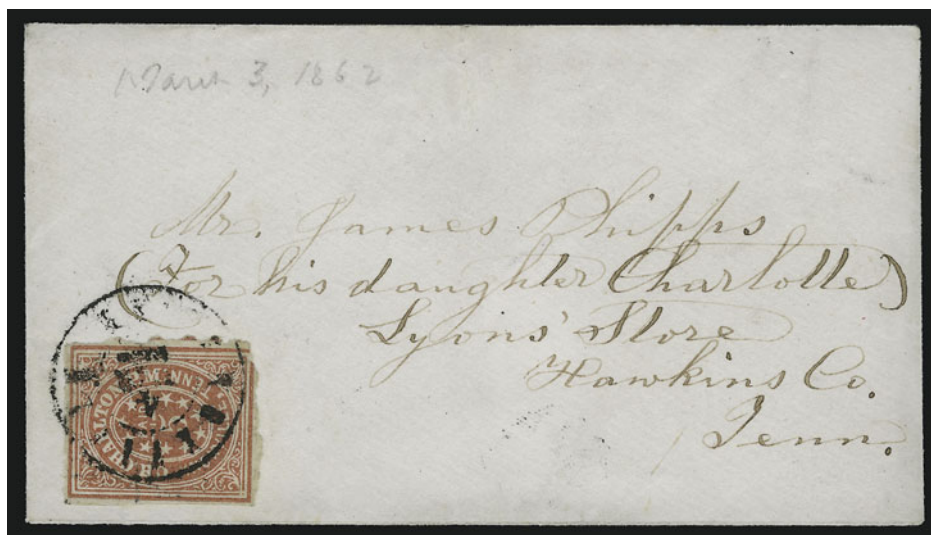 March 3, 1862
Mr. James Phipps
(For his daughter Charlotte)
Lyons' Store
Hawkins Co.
Tenn.